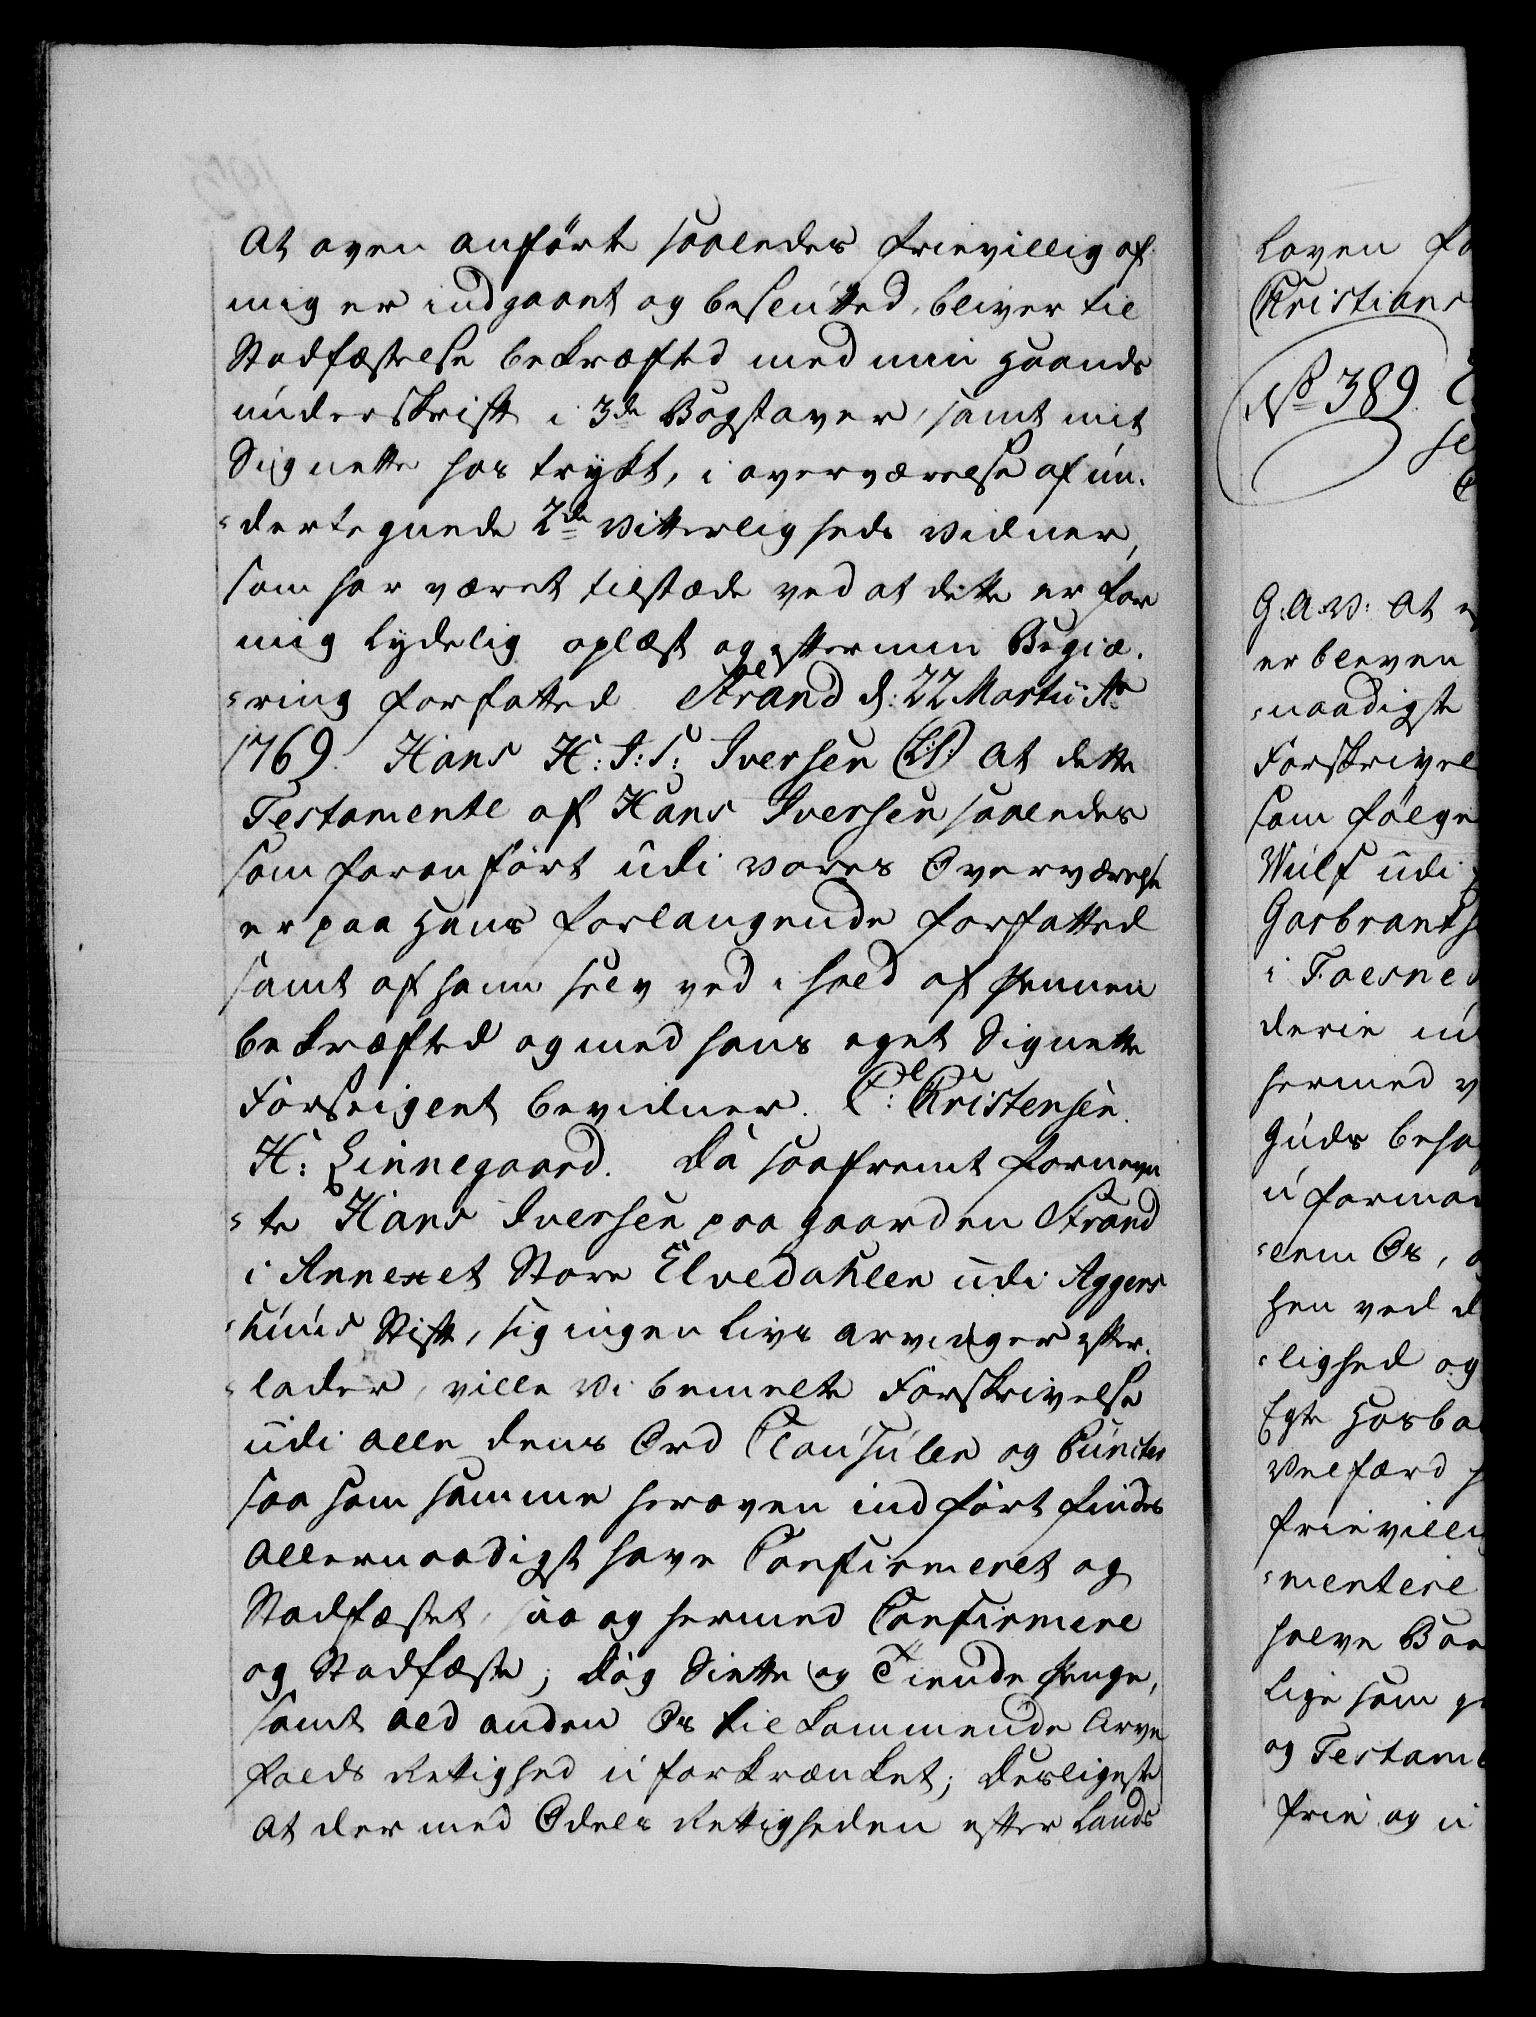 At oven anførte saaledes frievillig af
mig er indgaaet og beslutted, bliver til
Stadfæstelse bekræfted med min Haands
underskrift i 3de Bogstaver, samt mit
Signette hos trykt, i overværelse af un-
dertegnede 2de Vitterligheds Vidner,
som har været tilstæde ved at dette er for
mig lydelig oplæst og efter min Begiæ-
ring forfatted. Strand d: 22 Martii Ao
1769. Hans H: I: S: Iversen (L.S.) At dette
Testamente af Hans Iversen saaledes
som foranført udi vores Overværelse
er paa Hans forlangende forfatted
samt af ham selv ved i hold af Pennen
bekræfted og med hans eget Signette
Forseiglet bevidner. P: Kristensen.
H: Linnegaard. Da saafremt fornevn-
te Hans Iversen paa gaarden Strand
i Annexet Store Elvedahlen udi Aggers-
huus Stift, sig ingen Livs Arvinger efter-
lader, ville Vi bemelte Forskrivelse
udi alle dens Ord Clausuler og Puncter
saa som samme heroven indført findes
Allernaadigst have Confirmeret og
Stadfæstet, saa og hermed Confirmere
og Stadfæste; Dog Siette og Tiende Penge,
samt ald anden Os tilkommende Arve
falds Rettighed uforkrænket; Desligeste
At der med Odels Rettigheden efter Lands
Loven
Kristians
No 389.
G. A. V: At
er bleven
naadigste
Forskrivel
som følge
Wulf udi
Garbrants
i Foesne
derie
hermed
Guds beha
uforma
lem Os,
hen ved
lighed og
Egte Hosbo
Velfærd
frievilli
mentere
halve Boe
lige som
og Testam
frie og u